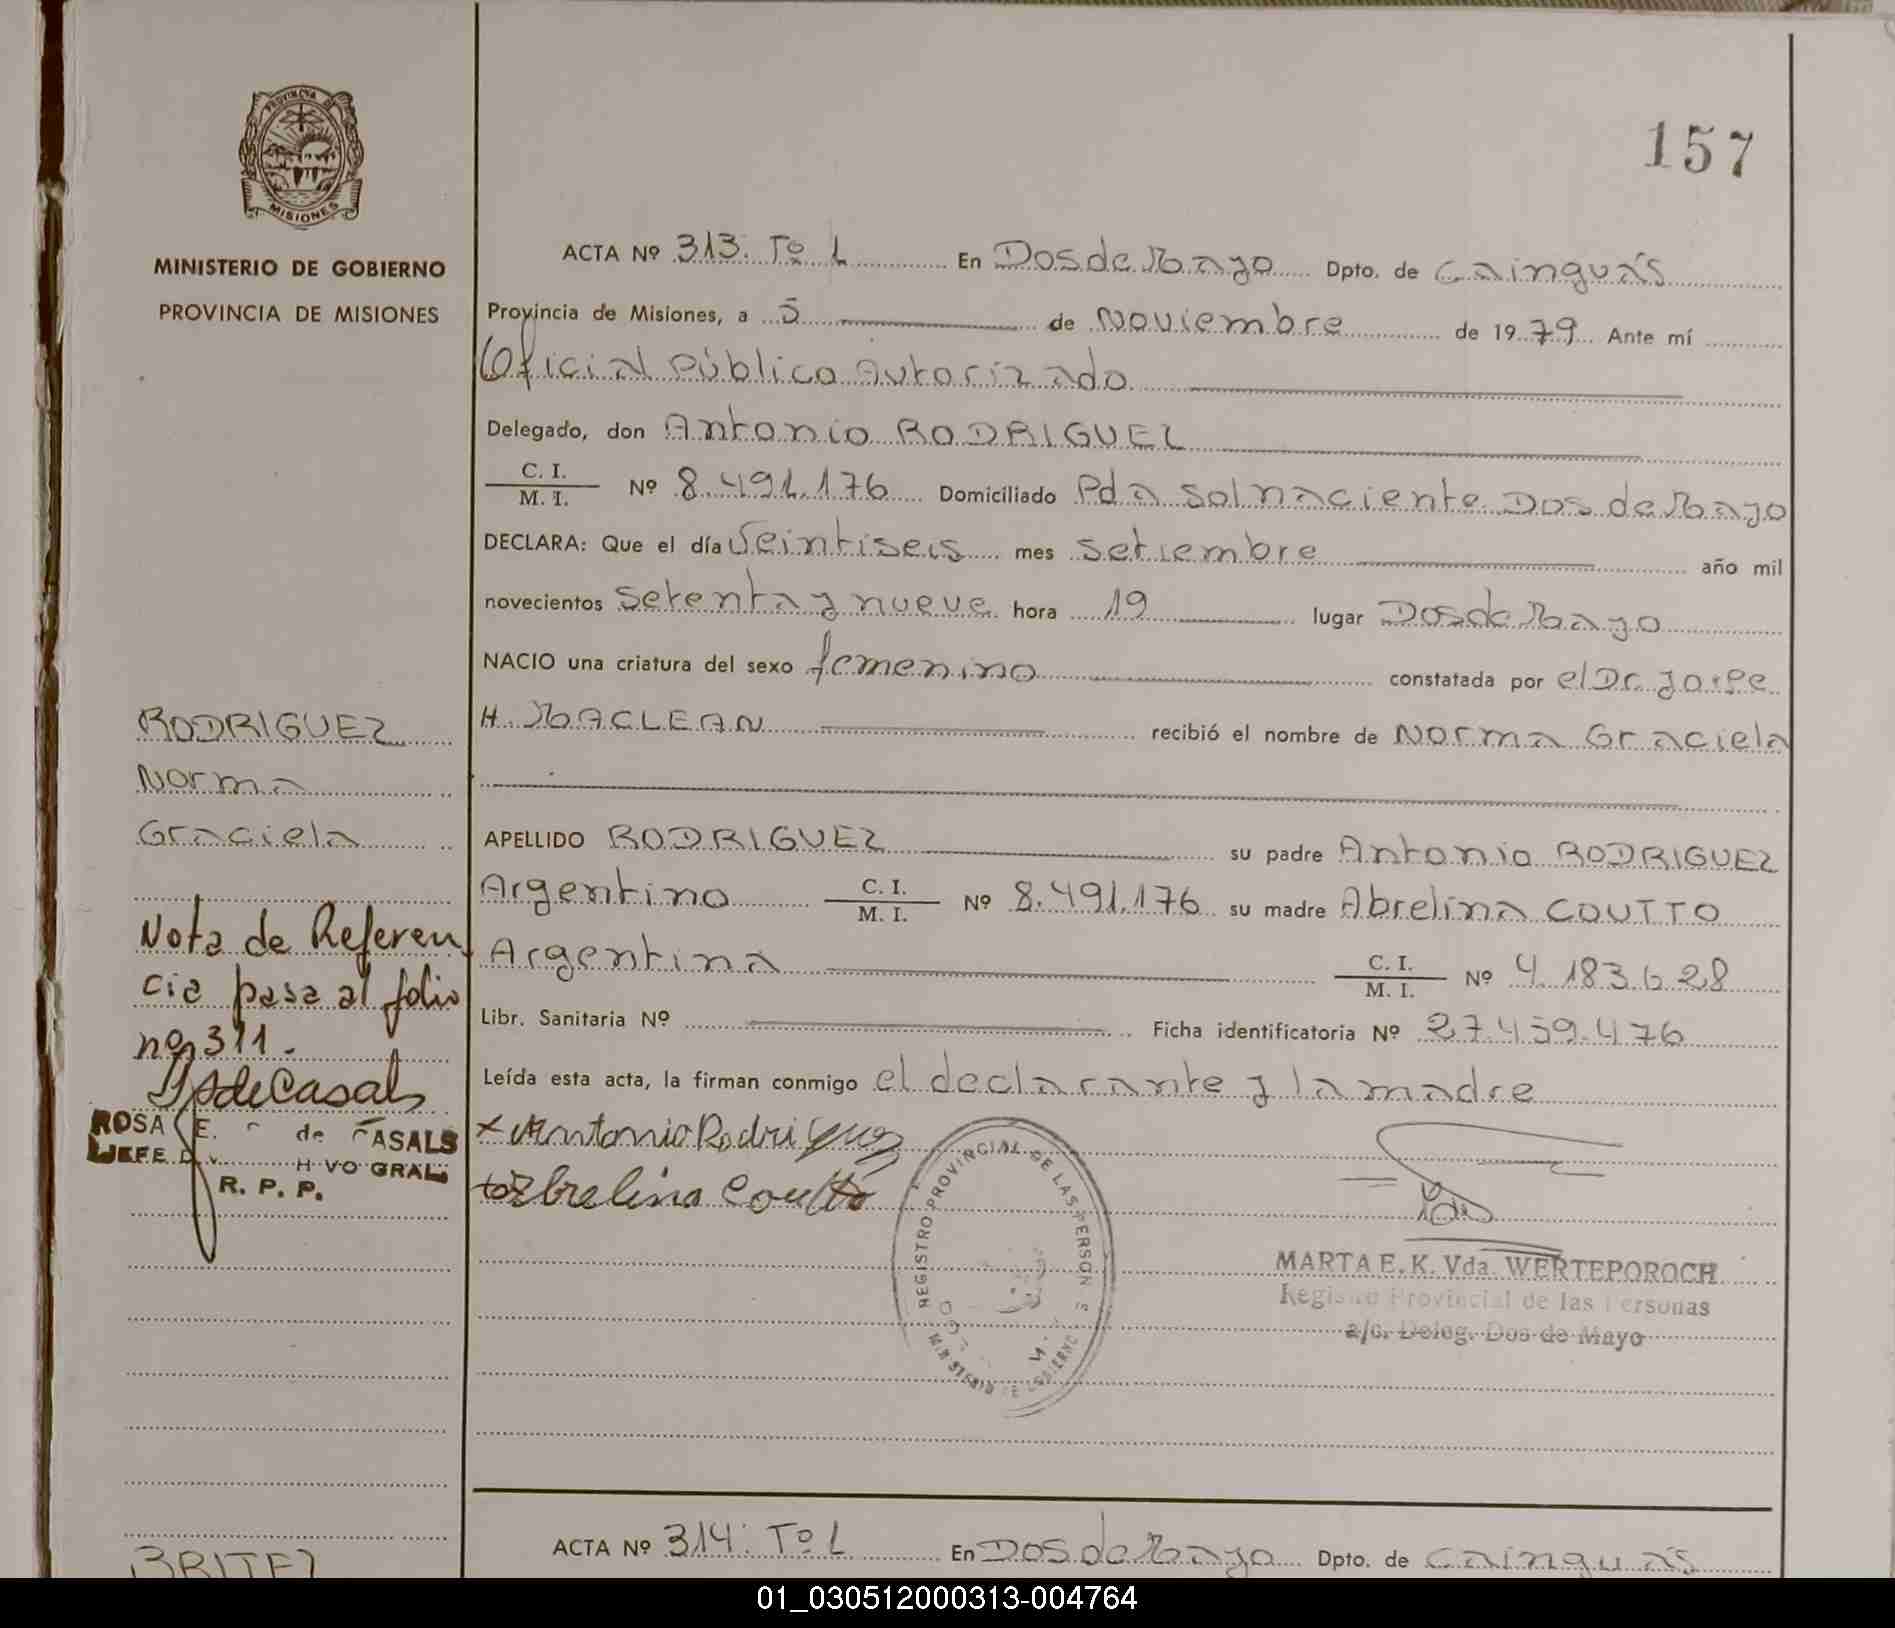 PROVINCIA DE
MISIONES
MINISTERIO DE GOBIERNO
PROVINCIA DE MISIONES
157
ACTA Nº 313. Tº 1 En Dos de Mayo Dpto. de Cainguás
Provincia de Misiones, a 5 de Noviembre de 1979 Ante mí
Oficial Público Autorizado
Delegado, don Antonio RODRIGUEZ
C. I.
M. I. Nº 8.491.176 Domiciliado Pda Sol naciente Dos de Mayo
DECLARA: Que el día Veintiseis mes setiembre año mil
novecientos setenta y nueve hora 19 lugar Dos de Mayo
NACIO una criatura del sexo femenino constatada por el Dr. Jorge
H. MACLEAN recibió el nombre de Norma Graciela
APELLIDO RODRIGUEZ su padre Antonio RODRIGUEZ
Argentino C. I.
M. I. Nº 8.491.176 su madre Abrelina COUTTO
Argentina C. I.
M. I. Nº 4.183628
Libr. Sanitaria Nº Ficha identificatoria Nº 27.459.476
Leída esta acta, la firman conmigo el declarante y la madre
x Antonio Rodriguez
Abrelina Coutto
REGISTRO PROVINCIAL DE LAS PERSON
MARTA E. K. Vda. WERTEPOROCH
Registro Provincial de las Personas
a/c. Deleg. Dos de Mayo
RODRIGUEZ
Norma
Graciela
Nota de Referen
cia pasa al folio
nº 311.
de Casals
ROSA E. de CASALS
JEFE VO GRAL
R. P. P.
ACTA Nº 314. Tº 1 En Dos de Mayo Dpto. de Cainguás
BRITEZ
01_030512000313-004764